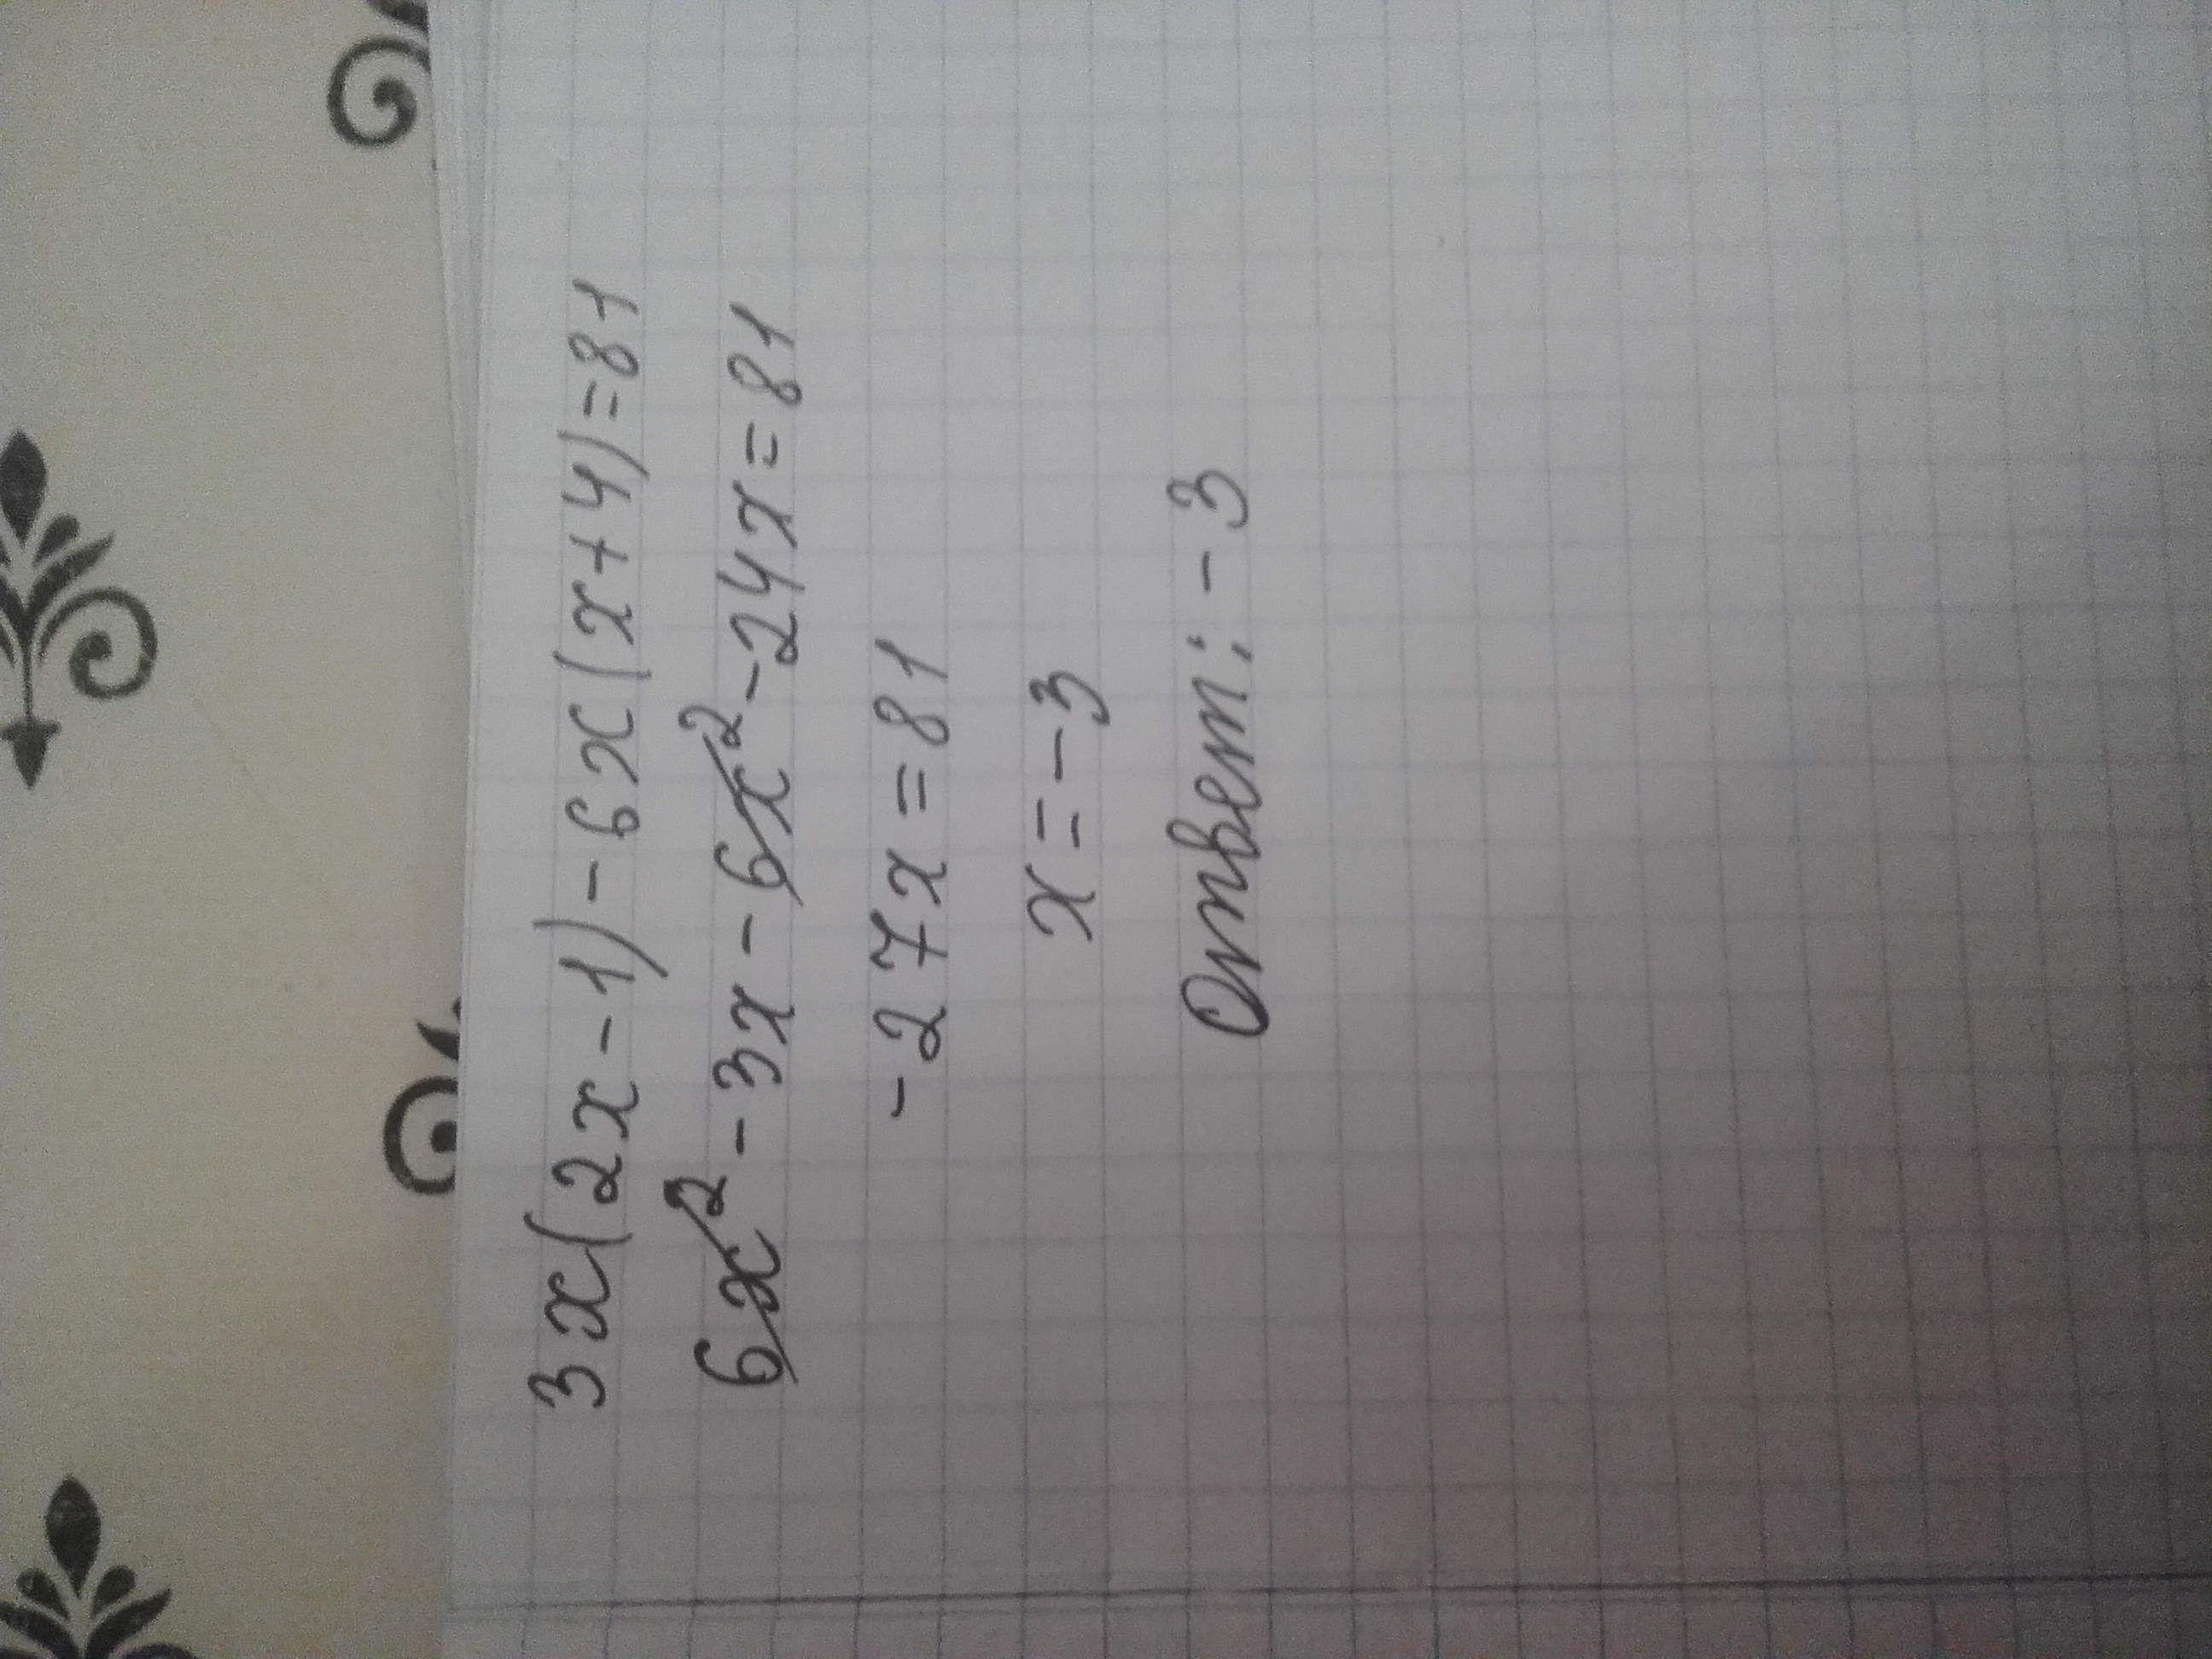 3x(2x-1)-6x(x+4)=81
6x²-3x-6x²-24x=81
-27x=81
x=-3
Ответ: -3